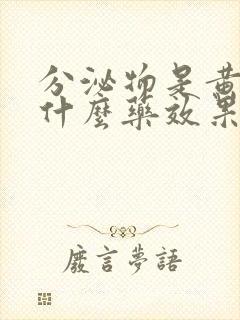 分泌物是黄
什麼藥效果
廢言夢語